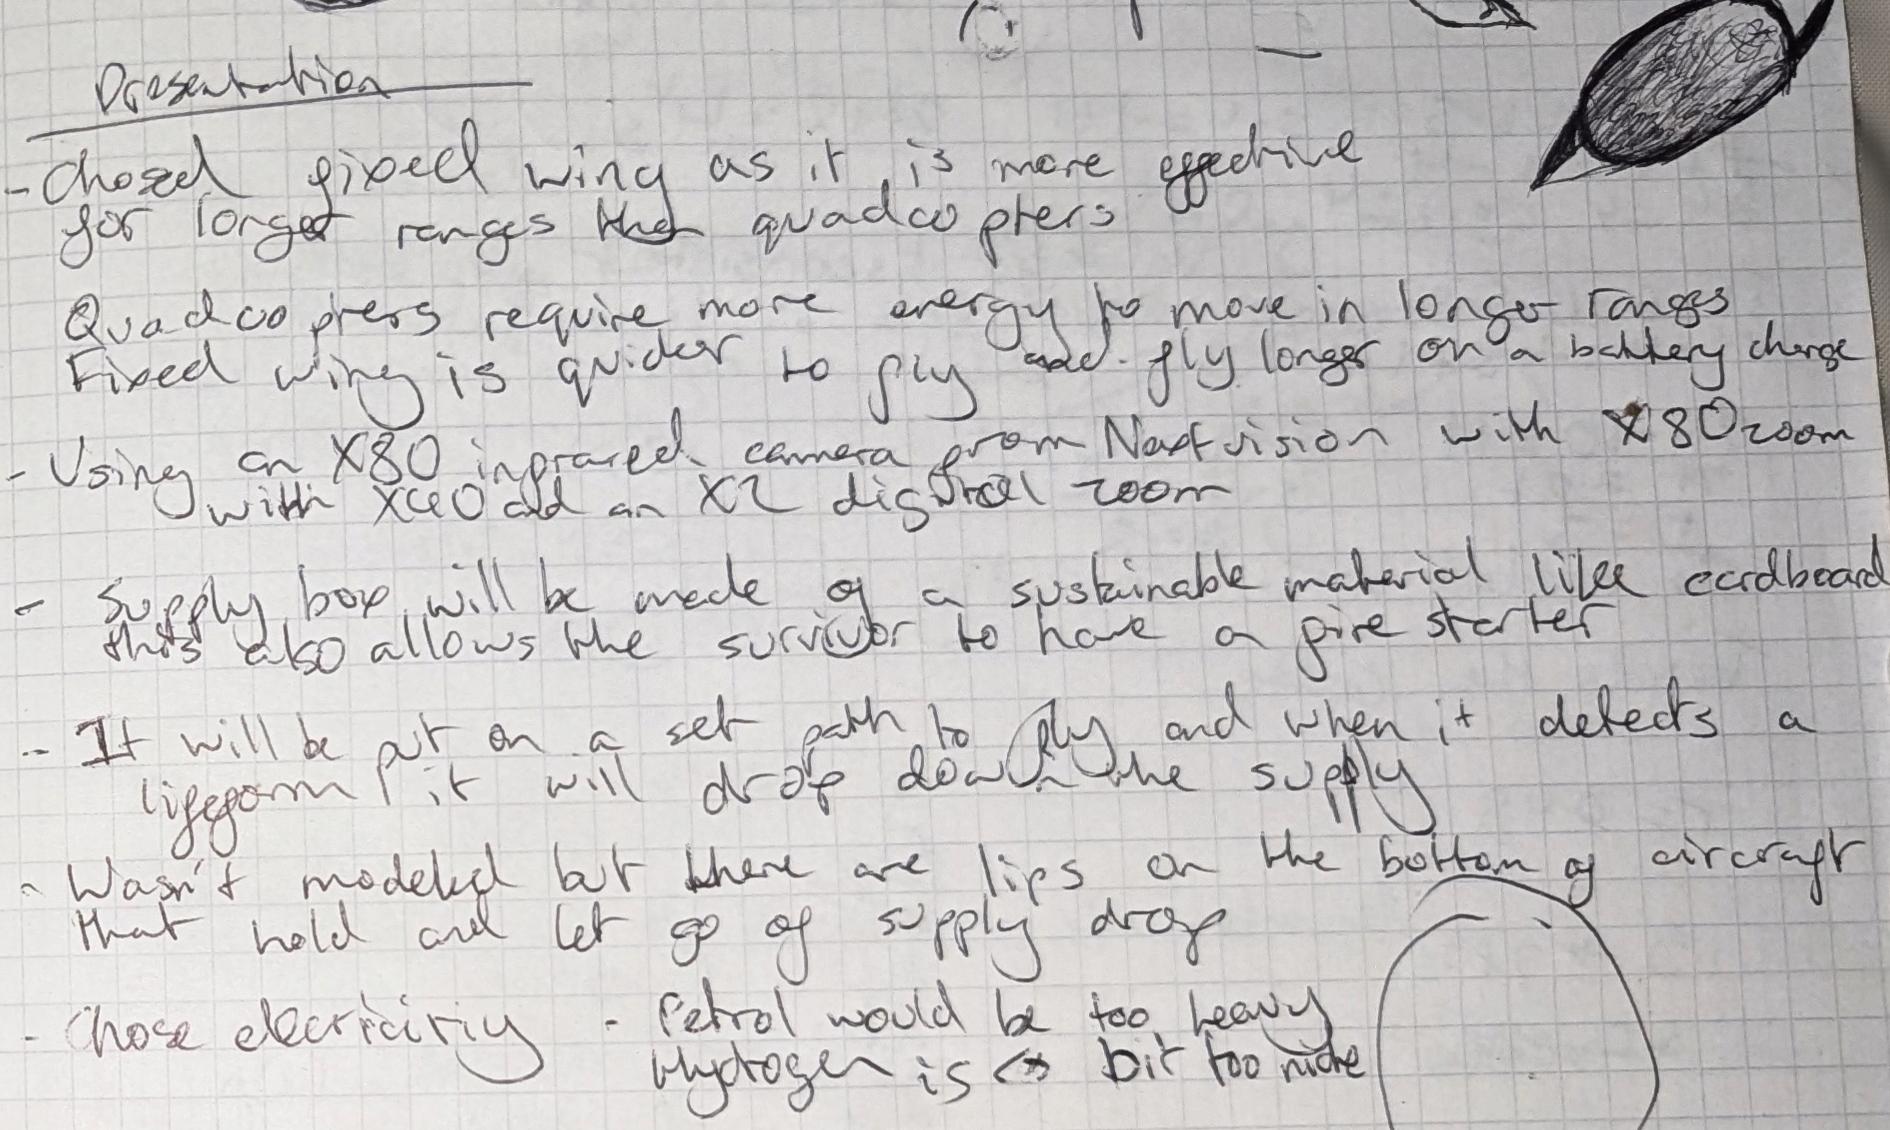 Presentation
- Chosed fixed wing as it is more effective
for longer ranges than quadcopters
Quadcopters require more energy to move in longer ranges
Fixed wing is quicker to fly and fly longer on a battery charge
- Using an X80 infrared camera from Nextvision with X80 zoom
with X40 and an X2 digital zoom
- Supply box will be made of a sustainable material like cardboard
this also allows the survivor to have a fire starter
- It will be put on a set path to fly and when it detects a
lifeform it will drop down the supply
- Wasn't modeled but there are lips on the bottom of aircraft
that hold and let go of supply drop
- Chose electricity - Petrol would be too heavy
Hydrogen is a bit too niche